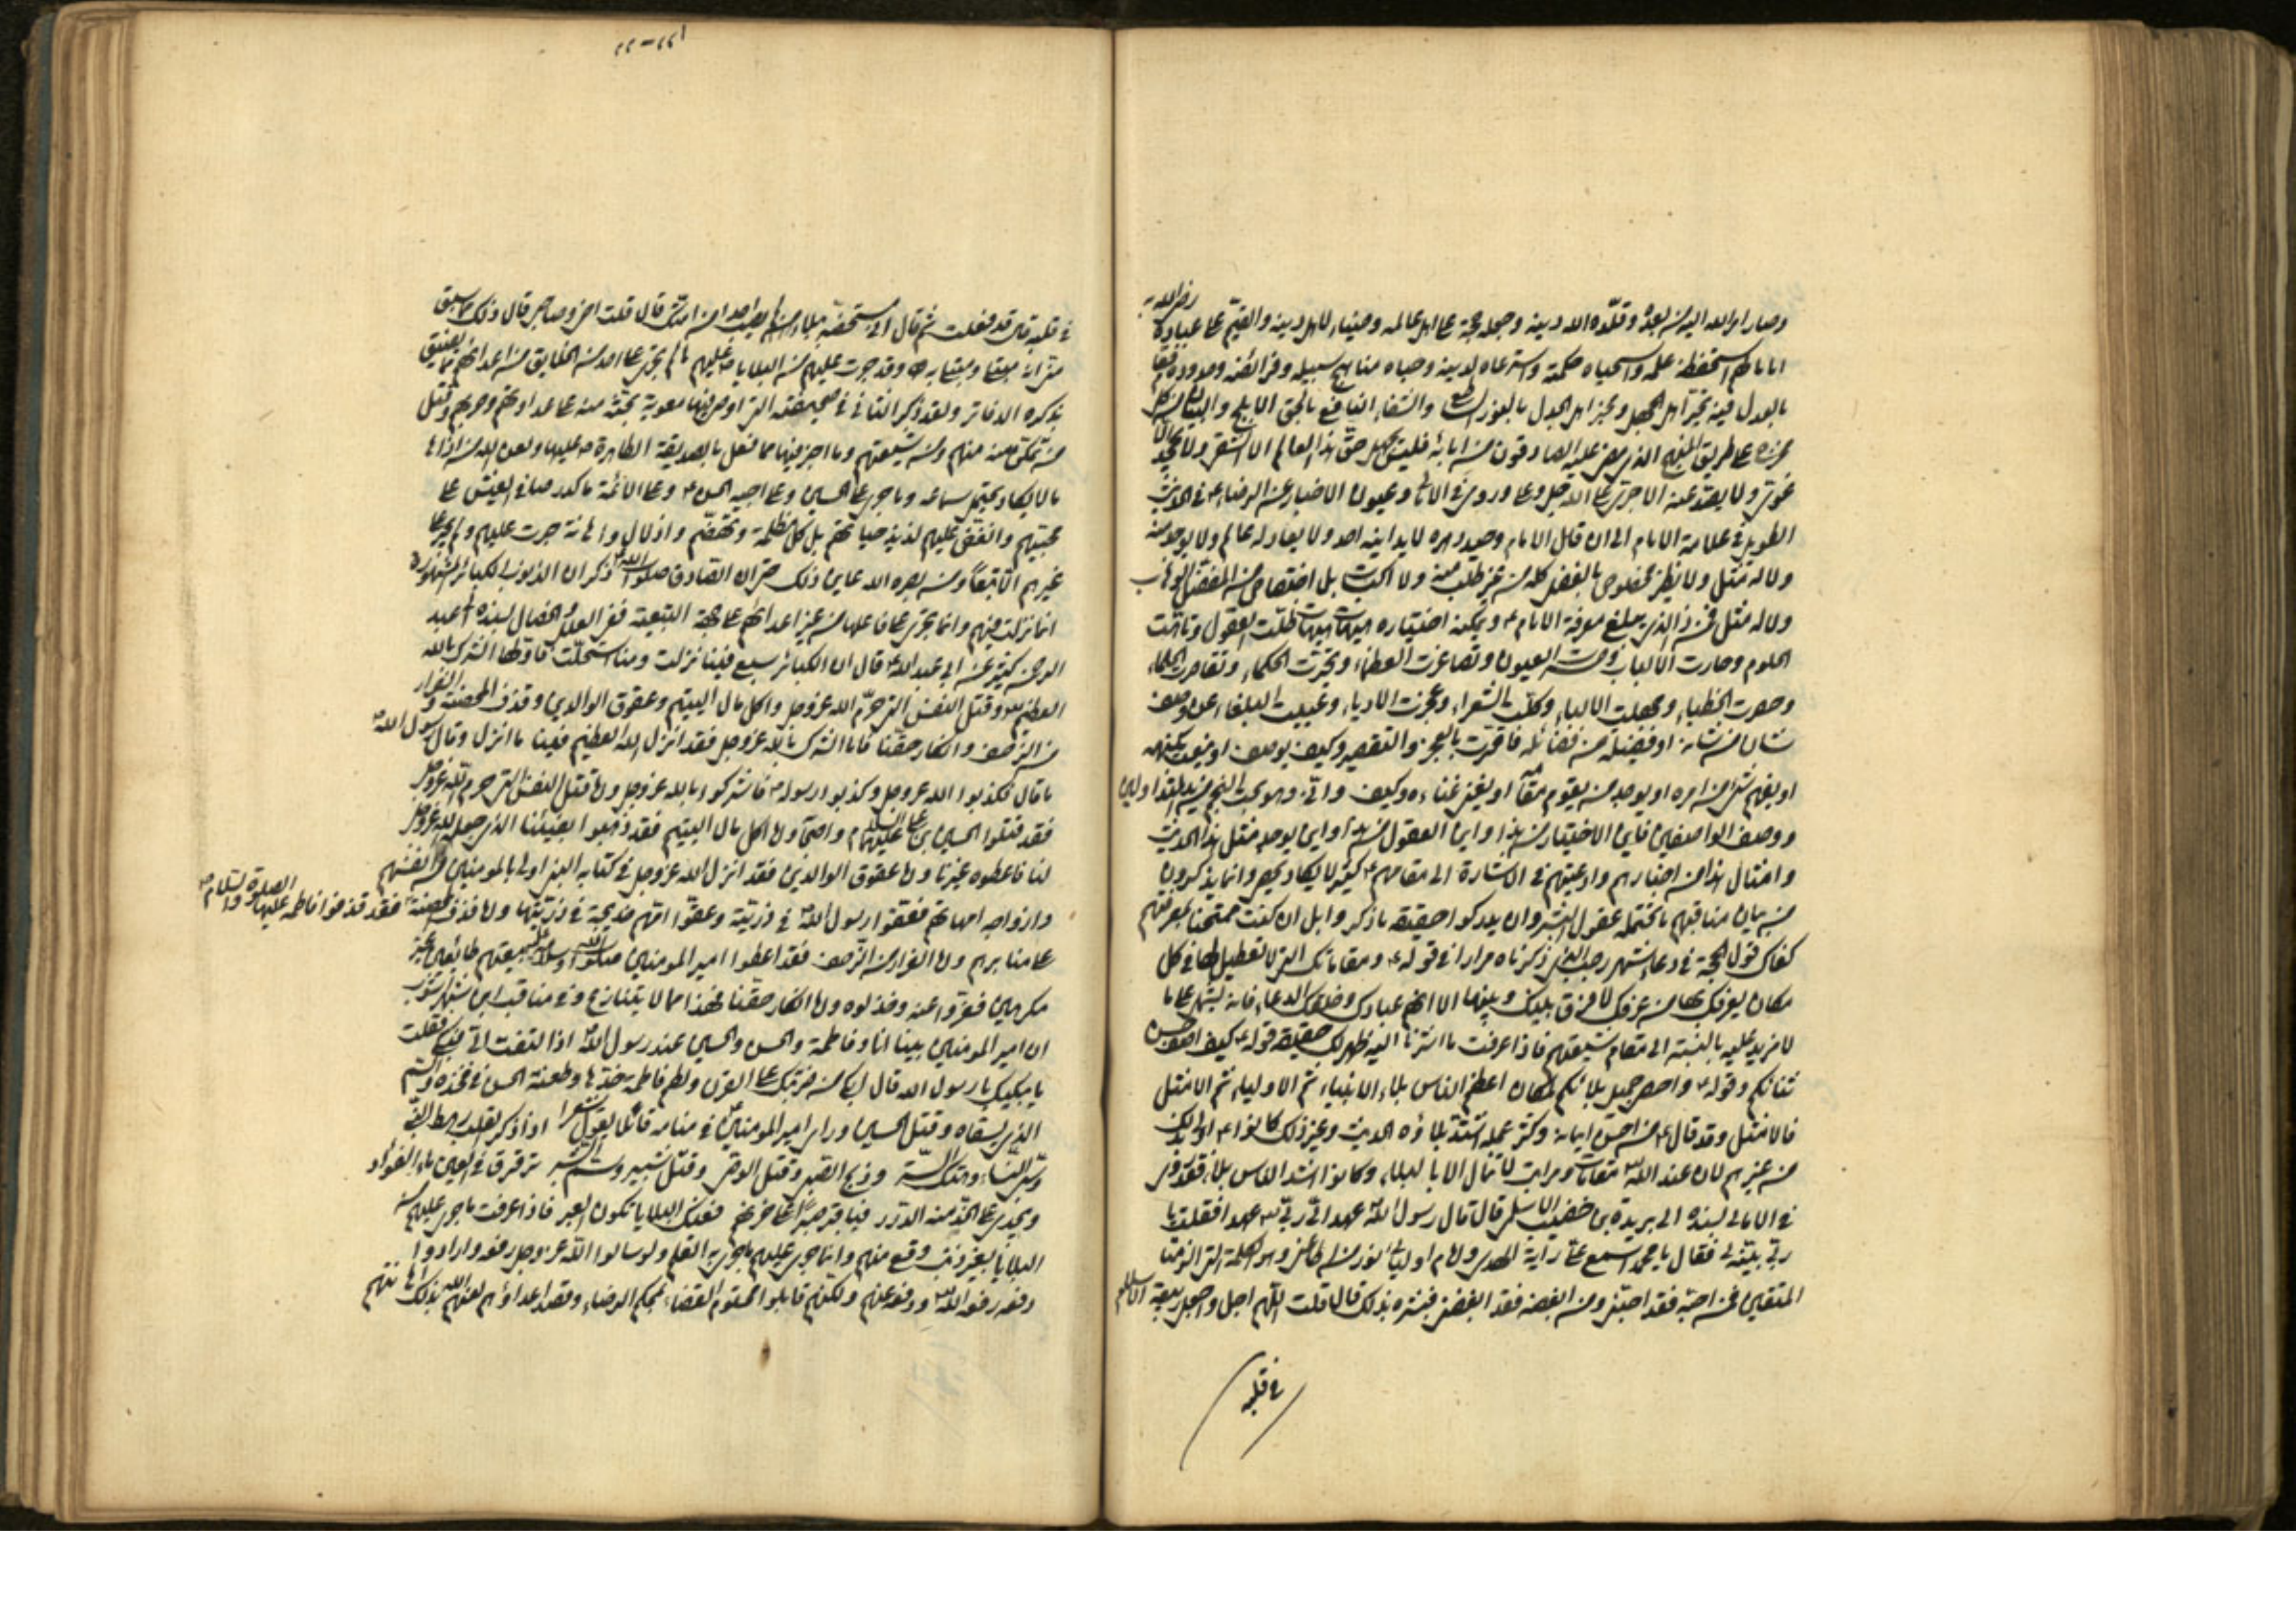 وصار امر الله اليه من بعده وقلّده الله دينه وجعله حجة على اهل عالمه وضياء لاهل دينه والقيّم على عباده رضى الله به
اماما لهم استحفظه علمه واستخباه حكمته واسترعاه لدينه وحباه مناهج سبيله وفرائضه وحدوده فقام
بالعدل عند تحيّر اهل الجهل وتحيير اهل الجدل بالنور الساطع والشفاء النافع بالحق الابلج والبيان من كل
مخرج على طريق المنهج الذى مضى عليه الصادقون من ابائه فليس يجهل حق هذا العالم الا شقى ولا يجحده الا
غوى ولا يصد عنه الا جرى على الله جل وعلا وروى فى الامالى وعيون الاخبار عن الرضاء ع فى الحديث
الطويل فى علامة الامام الى ان قال الامام وحيد دهره لا يدانيه احد ولا يعادله عالم ولا يوجد منه
ولا له مثل ولا نظير مخصوص بالفضل كله من غير طلب منه ولا اكتساب بل اختصاص من المفضل الوهاب
فمن ذا الذى يبلغ معرفة الامام ع ويمكنه اختياره هيهات هيهات ضلّت العقول وتاهت
الحلوم وحارت الالباب وحسرت العيون وتصاغرت العظماء وتحيّرت الحكماء وتقاصرت الحلماء
وحصرت الخطباء وجهلت الالباء وكلّت الشعراء وعجزت الادباء وعييت البلغاء عن وصف
شان من شانه او فضيلة من فضائله فاقرّت بالعجز والتقصير وكيف يوصف او ينعت بكنهه
او يفهم شىء من امره او يوجد من يقوم مقامه او يغنى غناه وكيف وانّى وهو بحيث النجم من يد
ووصف الواصفين فاين الاختيار من هذا واين العقول من هذا واين يوجد مثل هذا الحديث
وامثال هذا من اخبارهم وادعيتهم فى الاشارة الى مقامهم ع كثير لا يكاد يحصر وانما يذكرون
من بيان مناقبهم ما تحتمله عقول البشر وان يدركوا حقيقة ما ذكروا بل ان كنت ممتحنا بمعرفتهم
كفاك قول الحجة فى دعاء شهر رجب الذى ذكرناه مرارا فى قوله ع ومقاماتك التى لا تعطيل لها فى كل
مكان يعرفك بها من عرفك لا فرق بينك وبينها الا انهم عبادك وخلقك الدعاء فانه يشهد على ما
لا مزيد عليه بالنسبة الى مقام شيعتهم فاذا عرفت ما اشرنا اليه ظهر لك حقيقة قوله ع كيف اصف حسن
ثنائكم وقوله ع واحصى جميل بلائكم لان اعظم الناس بلاء الانبياء ثم الاولياء ثم الامثل
فالامثل وقد قال ع من احسن ايمانه وكثر عمله اشتد بلاؤه الحديث وغير ذلك كانوا ع اولى بذلك
من غيرهم لان عند الله مقامات ومراتب لا تنال الا بالبلاء وكانوا اشد الناس بلاء فقد روى
فى الامالى بسنده الى بريدة بن خضيب الاسلمى قال قال رسول الله ص عهد الىّ ربى عهدا فقلت يا
ربّ بيّنه لى فقال يا محمد اسمع علىّ راية الهدى وامام اوليائى ونور من اطاعنى وهو الكلمة التى الزمتها
المتقين فمن احبّه فقد احبّنى ومن ابغضه فقد ابغضنى فبشّره بذلك قال قلت اللهم اجل قلبه واجعل ربيعه الاسلام
فى قلبه
٢٢-٢٢١
فى قلبه قال قد فعلت ثم قال انى مستخصّه ببلاء لم يصب احدا من امتك قال قلت اخى وصاحبى قال ذلك مما سبق
منى انه مبتلى ومبتلى به وقد جرت عليهم من البلايا ما لم يجر على احد من الخلايق من اعدائهم مما يضيق
بذكره الدفاتر
من تمكن منه منهم ومن شيعتهم وما اخبر فيها مما فعل بالصديقة الطاهرة ع
ما لا يكاد يحتمل سماعه وما جرى على الحسين وعلى اخيه الحسن ع وعلى الائمة ما كدر صافى العيش على
محبّيهم
غيرهم الا تبعًا ومن بصره الله عاين ذلك حتى ان الصادق صلوات الله عليه ذكر ان الذنوب الكبائر المشهورة
انما نزلت فيهم وانما تجرى على فاعلها من غير اعدائهم على جهة التبعية ففى العلل والخصال بسنده الى عبد
الرحمن بن كثير عن ابى عبد الله ع قال ان الكبائر سبع فينا نزلت ومنا استحلّت فاولها الشرك بالله
العظيم وقتل النفس التى حرّم الله عز وجل واكل مال اليتيم وعقوق الوالدين وقذف المحصنة والفرار
من الزحف وانكار حقنا فاما الشرك بالله عز وجل فقد انزل الله العظيم فينا ما انزل وقال رسول الله ص
ما قال فكذبوا الله عز وجل وكذبوا رسوله ص فاشركوا بالله عز وجل واما قتل النفس التى حرم الله عز وجل
فقد قتلوا الحسين بن على عليهما السلام واصحابه واما اكل مال اليتيم فقد ذهبوا بفيئنا الذى جعله الله عز وجل
لنا فاعطوه غيرنا واما عقوق الوالدين فقد انزل الله عز وجل فى كتابه النبى اولى بالمومنين من انفسهم
وازواجه امهاتهم فعقّوا رسول الله ص فى ذريته وعقّوا امّهم خديجة فى ذريتها واما قذف المحصنة فقد قذفوا فاطمة عليها الصلوة والسلام
على منابرهم واما الفرار من الزحف فقد اعطوا امير المومنين صلوات الله وسلامه عليه بيعتهم طائعين غير
مكرهين ففرّوا عنه وخذلوه واما انكار حقنا فهذا مما لا يتنازع وفى مناقب ابن شهر اشوب
ان امير المومنين بينا انا وفاطمة والحسن والحسين عند رسول الله ص اذا التفت الىّ فبكى فقلت
ما يبكيك يا رسول الله قال ابكى من ضربتك على القرن ولطم فاطمة خدّها وطعنة الحسن فى فخذه والسّم
الذى يسقاه وقتل الحسين وراى امير المومنين فى منامه قائلا يقول شعرا اذا ذكر القلب رهط النبى
وسبى النساء وهتك الستر وذبح الصبى وقتل الوصى وقتل شبير وسمّ الشبر ترقرق فى العين ماء الفواد
ويجرى على الخد منه الدرر فيا قلب صبرًا على حزنهم فعند البلايا تكون العبر فاذا عرفت ما جرى عليهم من
البلايا بغير ذنب وقع منهم وانما جرى عليهم ما جرى به القلم ولو سالوا الله عز وجل رفعه وارادوا
دفعه رفعه الله ودفعه عنهم ولكنهم قابلوا محتوم القضاء بمحكم الرضاء